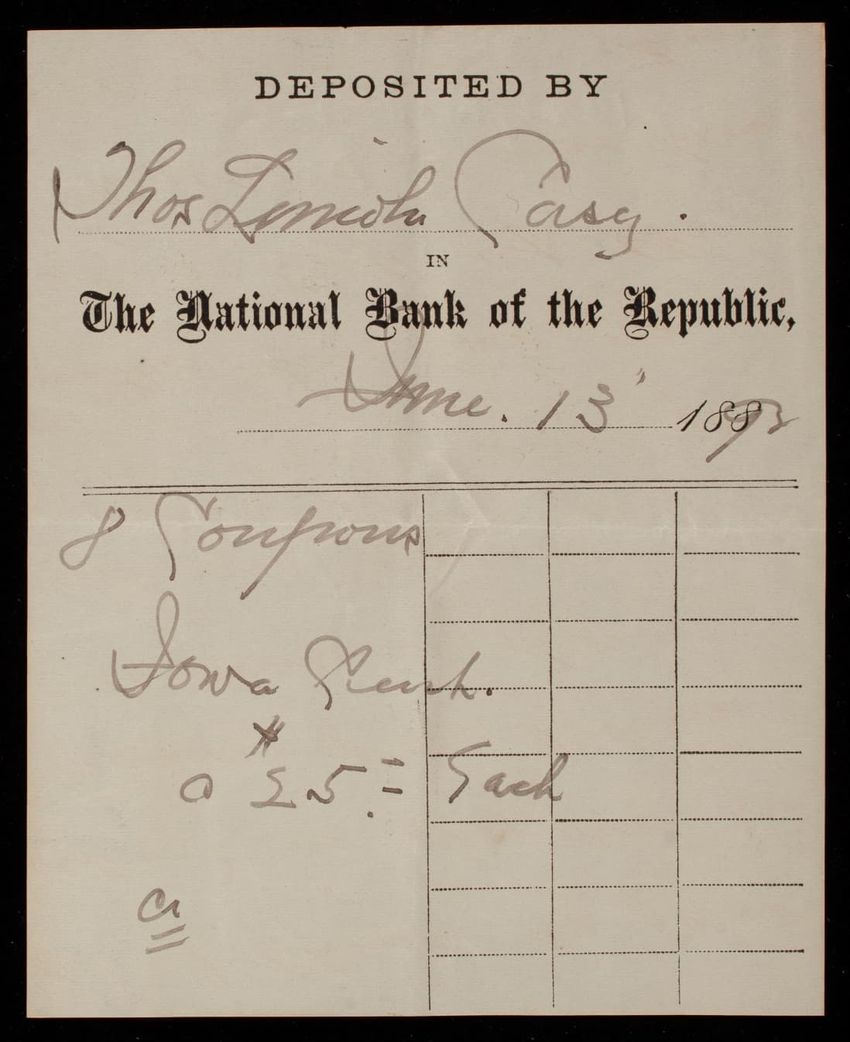 DEPOSITED BY
Thos Lincoln Casey.
IN
The National Bank of the Republic,
June. 13 1892
8 Coupons
Iowa Cent.
a $25.= Each
Cr